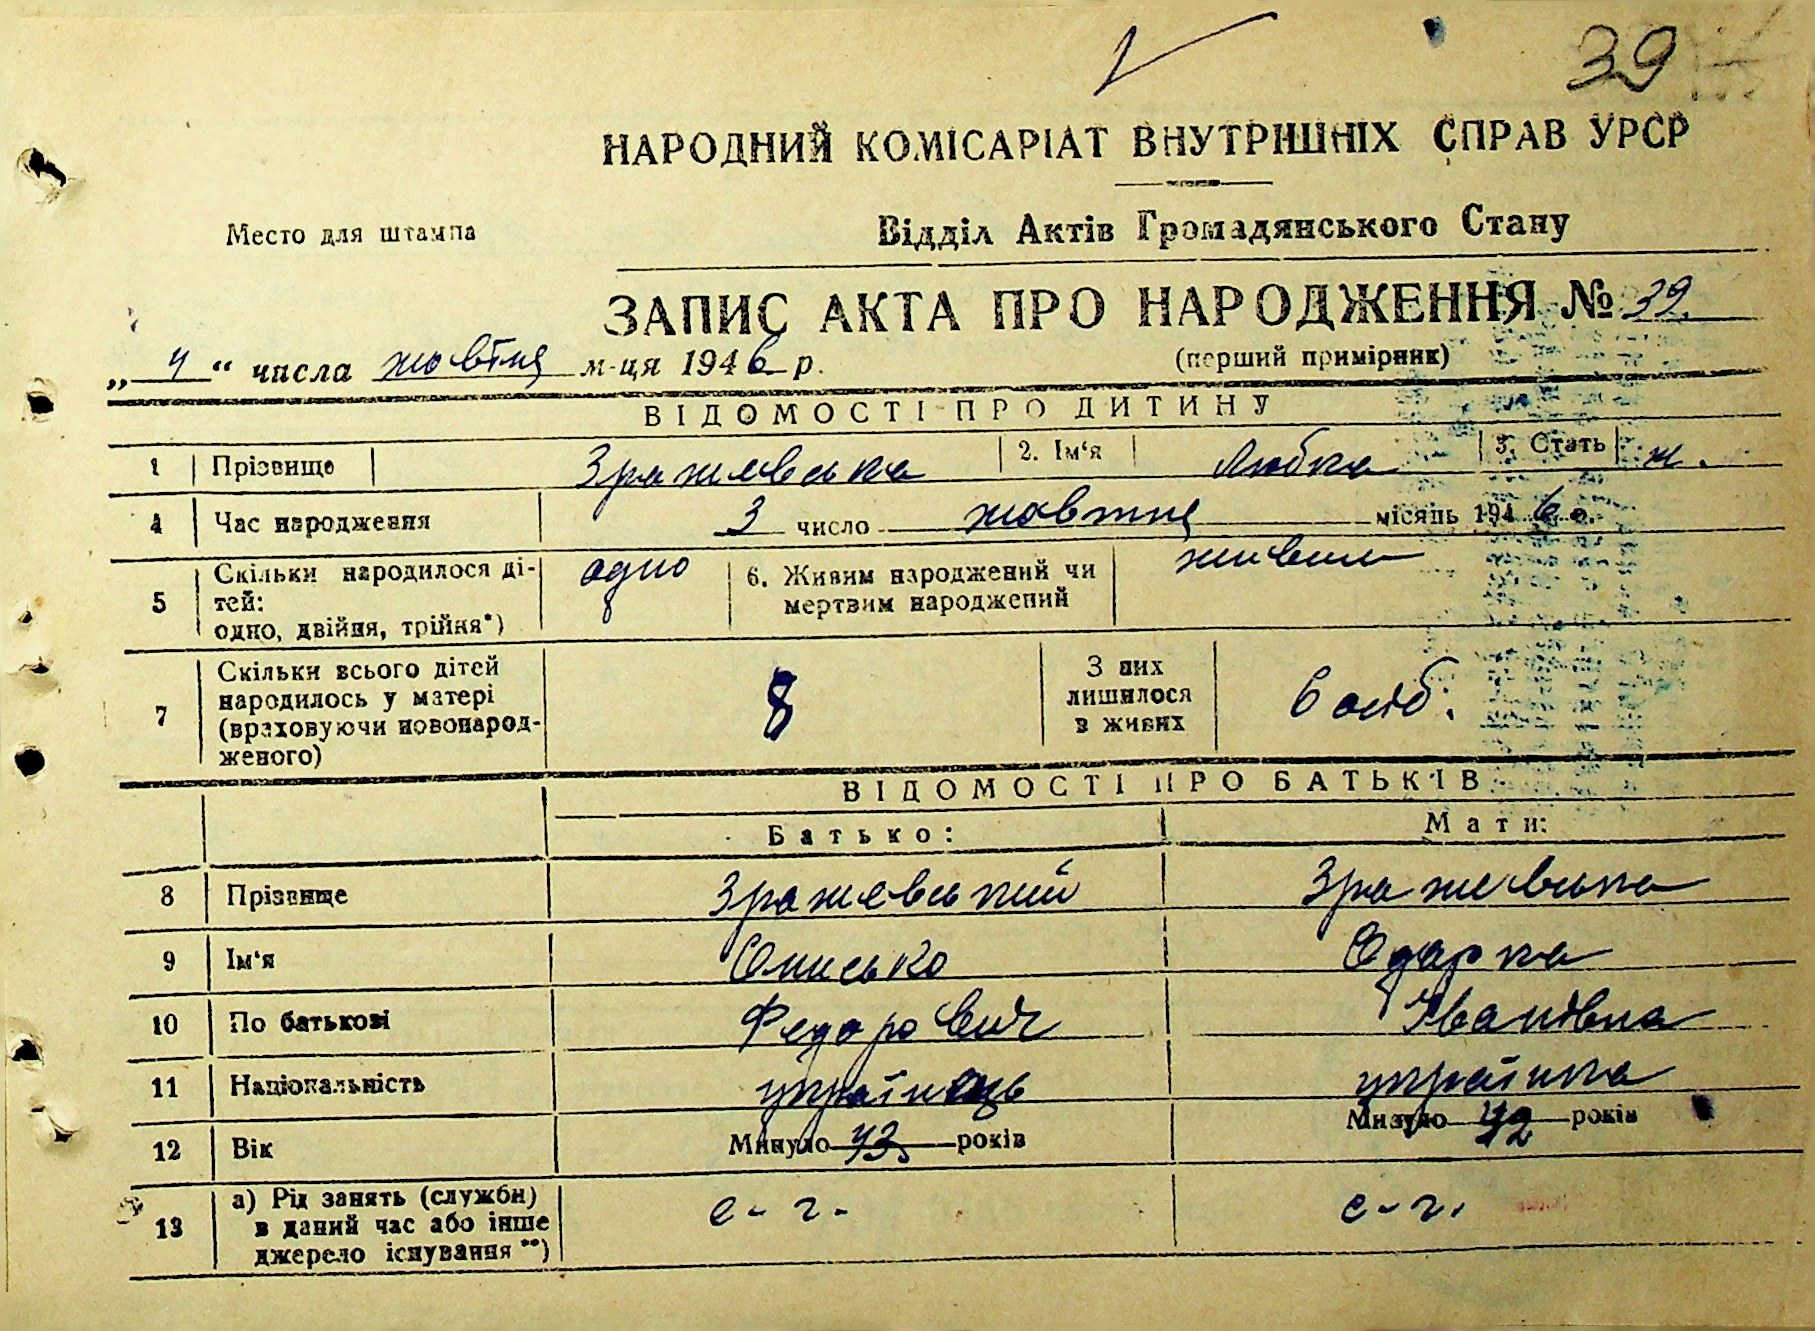 39
НАРОДНИЙ КОМІСАРІАТ ВНУТРІШНІХ СПРАВ УРСР
Место для штампа
Відділ Актів Громадянського Стану
ЗАПИС АКТА ПРО НАРОДЖЕННЯ № 39.
„ 4 “ числа жовтня м-ця 1946 р.
(перший примірник)
ВІДОМОСТІ ПРО ДИТИНУ
1 Прізвище Зражевська 2. Ім‘я Любка 3. Стать ж.
4 Час народження 3 число жовтня місяць 1946 р.
5 Скільки народилося ді-
тей:
одно, двійня, трійня*) одно 6. Живим народжений чи
мертвим народжений живим
7 Скільки всього дітей
народилось у матері
(враховуючи новонарод-
женого) 8 З них
лишилося
в живих 6 осіб.
ВІДОМОСТІ ПРО БАТЬКІВ
Батько: Мати:
8 Прізвище Зражевський Зражевська
9 Ім‘я Онисько Одарка
10 По батькові Федорович Іванівна
11 Національність українець українка
12 Вік Минуло 43 років Минуло 42 років
13 а) Рід занять (служби)
в даний час або інше
джерело існування **) с-г. с-г.